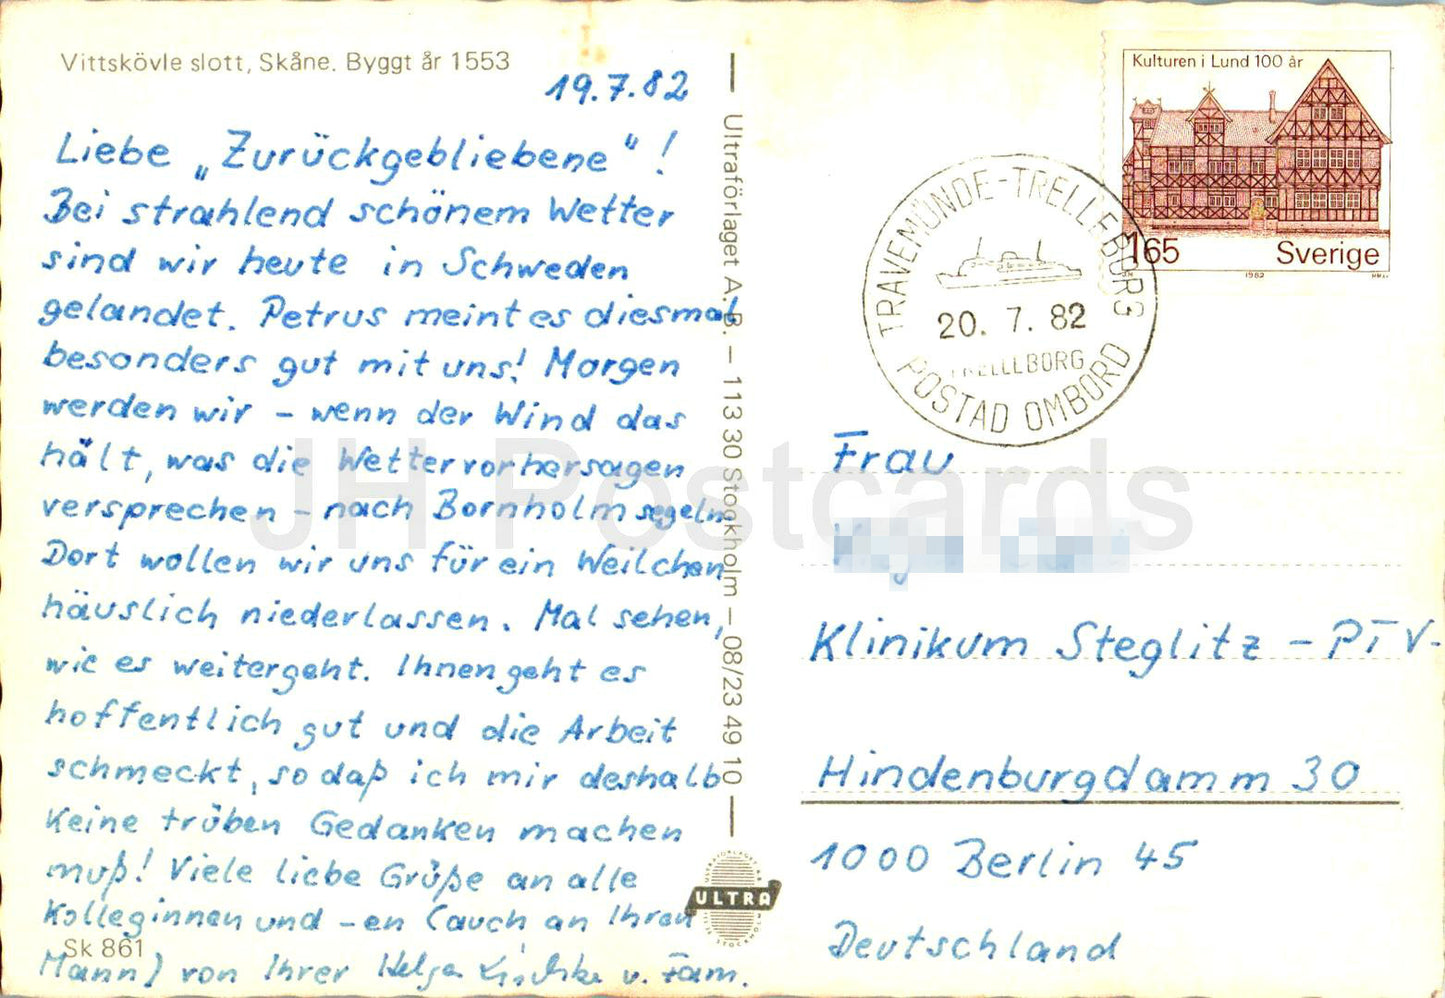 Vittskövle slott, Skåne. Byggt år 1553
19.7.82
Liebe „Zurückgebliebene"!
Bei strahlend schönem Wetter
sind wir heute in Schweden
gelandet. Petrus meint es diesmal
besonders gut mit uns! Morgen
werden wir – wenn der Wind das
hält, was die Wettervorhersagen
versprechen – nach Bornholm segeln.
Dort wollen wir uns für ein Weilchen
häuslich niederlassen. Mal sehen,
wie es weitergeht. Ihnen geht es
hoffentlich gut und die Arbeit
schmeckt, so daß ich mir deshalb
keine trüben Gedanken machen
muß! Viele liebe Grüße an alle
Kolleginnen und –en (auch an Ihren
Mann) von Ihrer Helga u. Fam.
Sk 861
Ultraförlaget A.B. – 113 30 Stockholm – 08/23 49 10
ULTRA
Kulturen i Lund 100 år
165 Sverige
1982
TRAVEMÜNDE-TRELLEBORG
20. 7. 82
TRELLEBORG
POSTAD OMBORD
Frau
Klinikum Steglitz – PTV-
Hindenburgdamm 30
1000 Berlin 45
Deutschland
JH Postcards